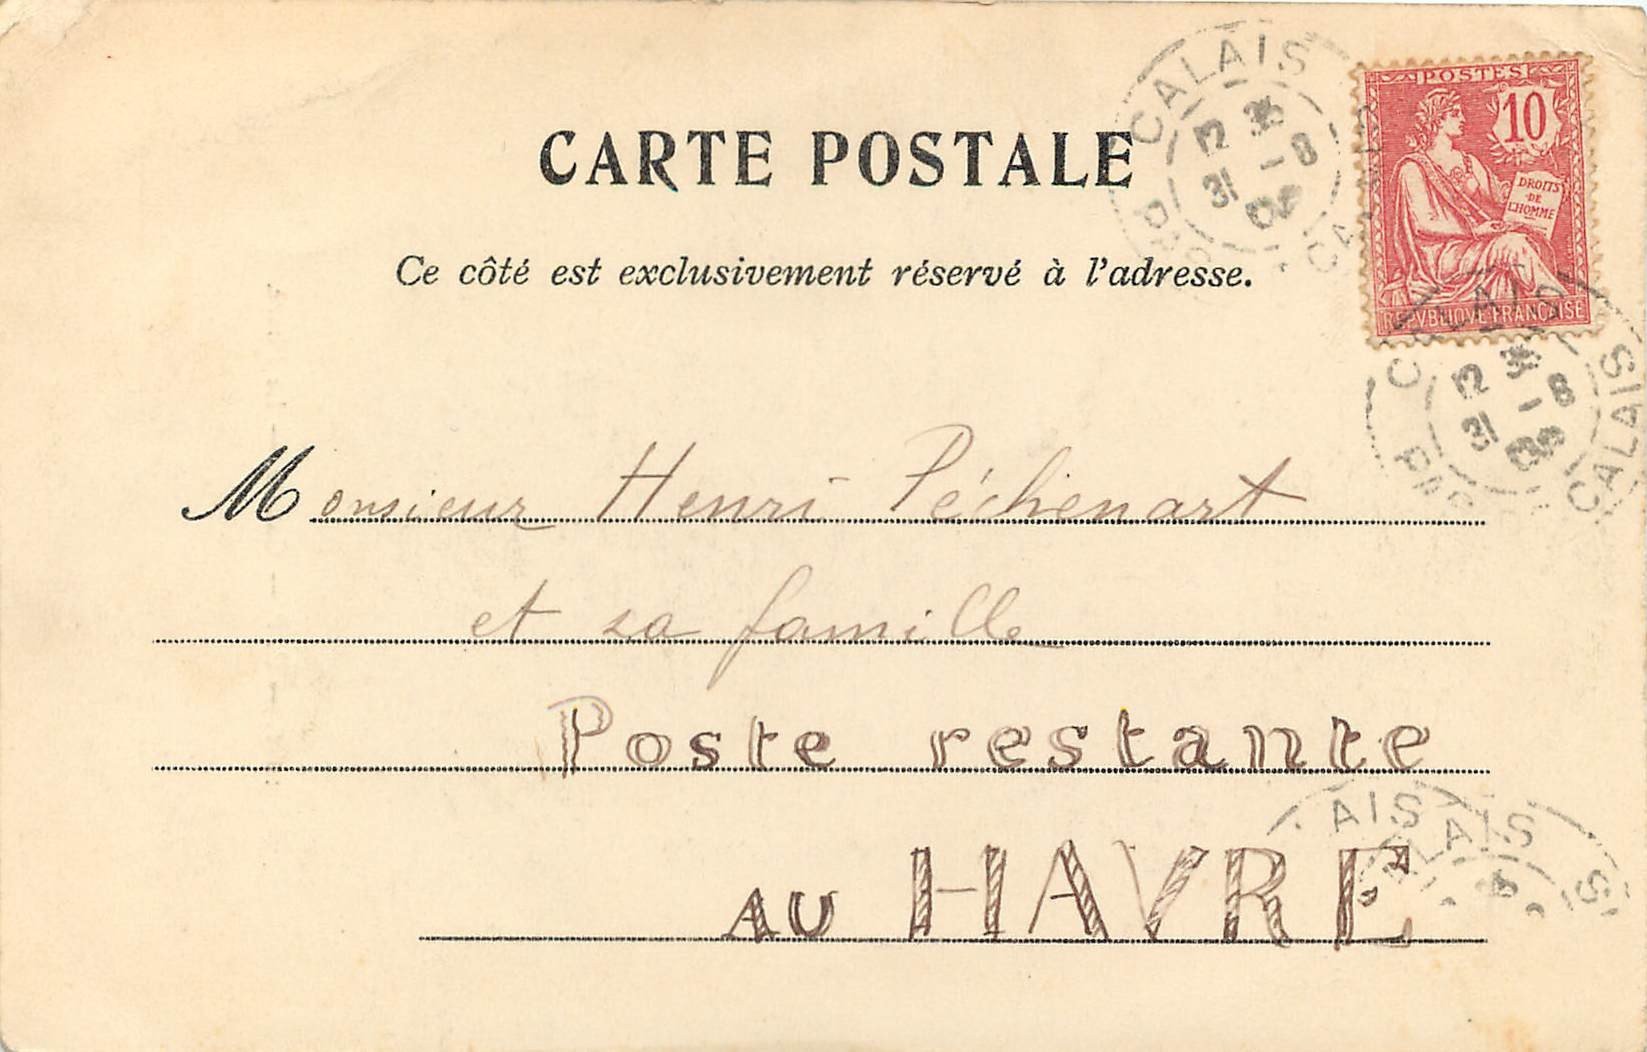 CARTE POSTALE
Ce côté est exclusivement réservé à l'adresse.
POSTES
10
DROITS
DE
L'HOMME
REPVBLIQVE FRANÇAISE
CALAIS
12
31 -8
CALAIS
12
31 -8
CALAIS
Monsieur Henri Péchenart
et sa famille
Poste restante
AU HAVRE
AIS
ALAIS